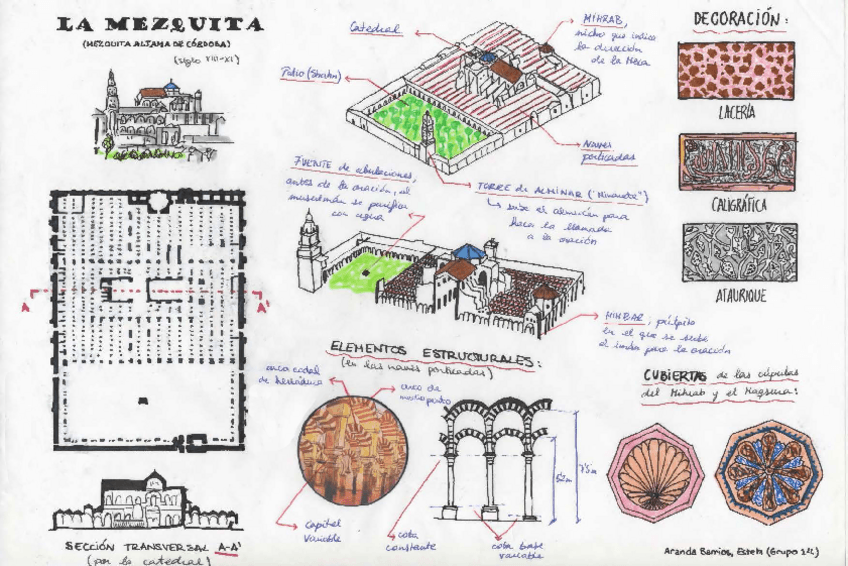 LA MEZQUITA
(MEZQUITA ALJAMA DE CÓRDOBA)
(siglo VIII-XI)
Catedral
MIHRAB,
nicho que indica
la dirección
de la Meca
Patio (Shahn)
Naves
porticadas
FUENTE de abluciones,
antes de la oración, el
musulmán se purifica
con agua
TORRE de ALMINAR ("Minarete")
sube el almuédano para
hacer la llamada
a la oración
MIMBAR, púlpito
en el que se sube
el imán para la oración
DECORACIÓN:
LACERÍA
CALIGRÁFICA
ATAURIQUE
A
A'
ELEMENTOS ESTRUCTURALES:
(en las naves porticadas)
arco
de herradura
arco de
medio punto
Capitel
variable
cota
constante
cota base
variable
CUBIERTAS de las cúpulas
del Mihrab y el Maqsura:
SECCIÓN TRANSVERSAL A-A'
(por la catedral)
Aranda Barrios, Estela (Grupo